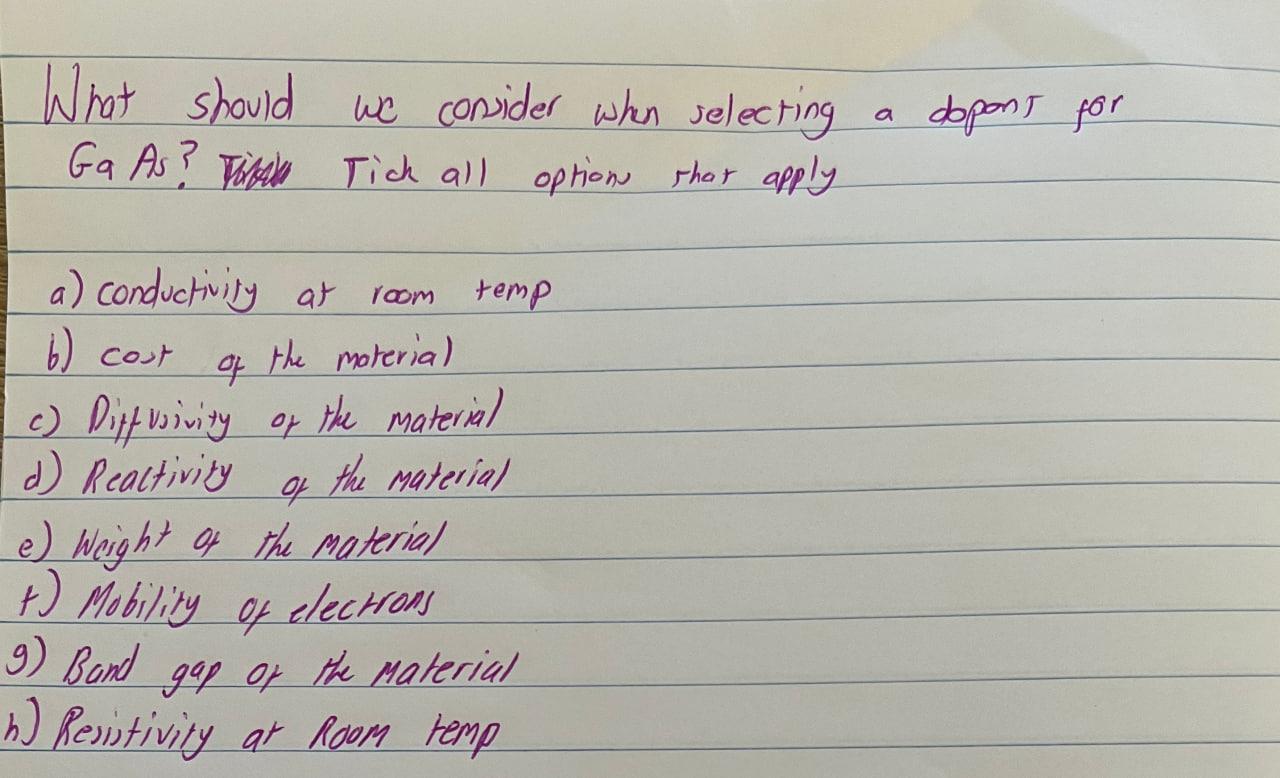 What should we consider when selecting a dopant for
Ga As? Tick all options that apply
a) conductivity at room temp
b) cost of the material
c) Diffusivity of the material
d) Reactivity of the material
e) Weight of the material
f) Mobility of electrons
g) Band gap of the material
h) Resistivity at Room temp